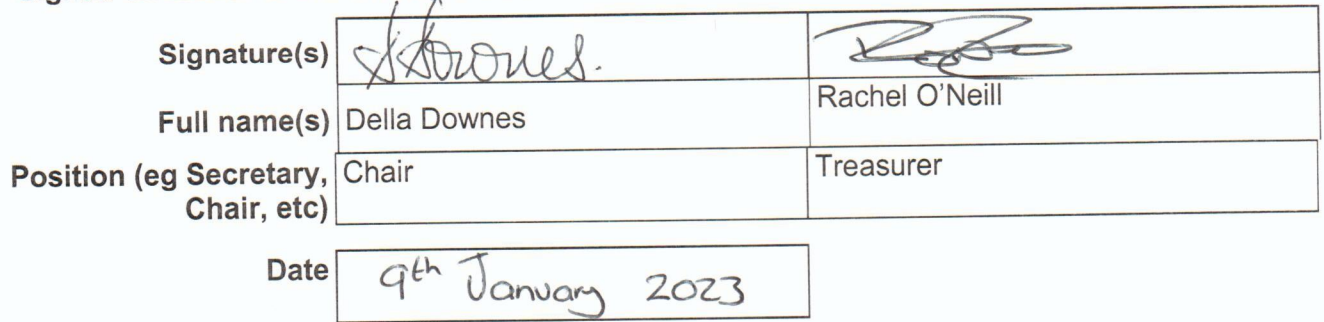 Signature(s) Downes.
Full name(s) Della Downes Rachel O'Neill
Position (eg Secretary, Chair Treasurer
Chair, etc)
Date 9th January 2023